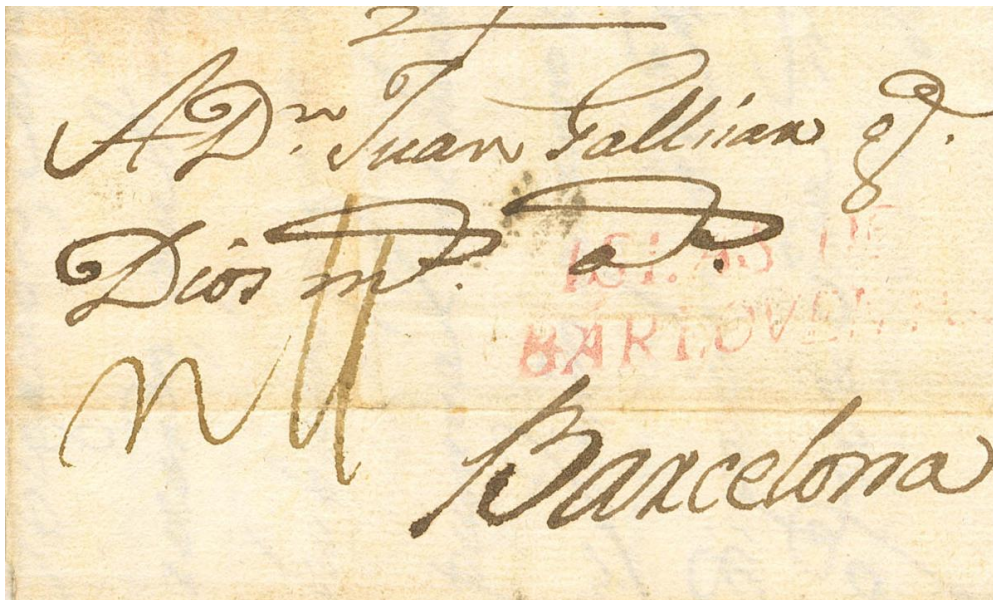 A Dn. Juan Gallisan q
Dios ms. as.
ISLAS DE
BARLOVENTO
Barcelona